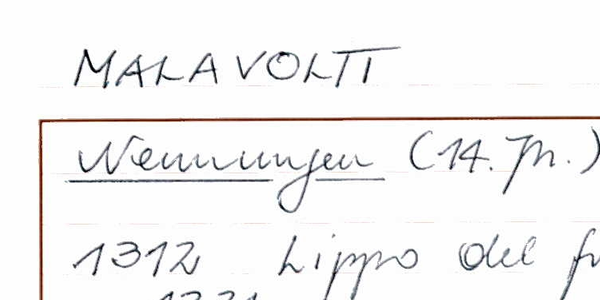 MALAVOLTI
Nennungen (14. Jh.)
1312 Lippo del